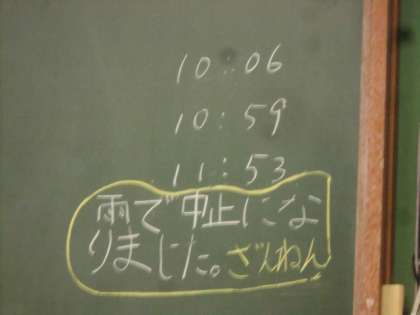 10:06
10:59
11:53
雨で中止にな
りました。ざんねん